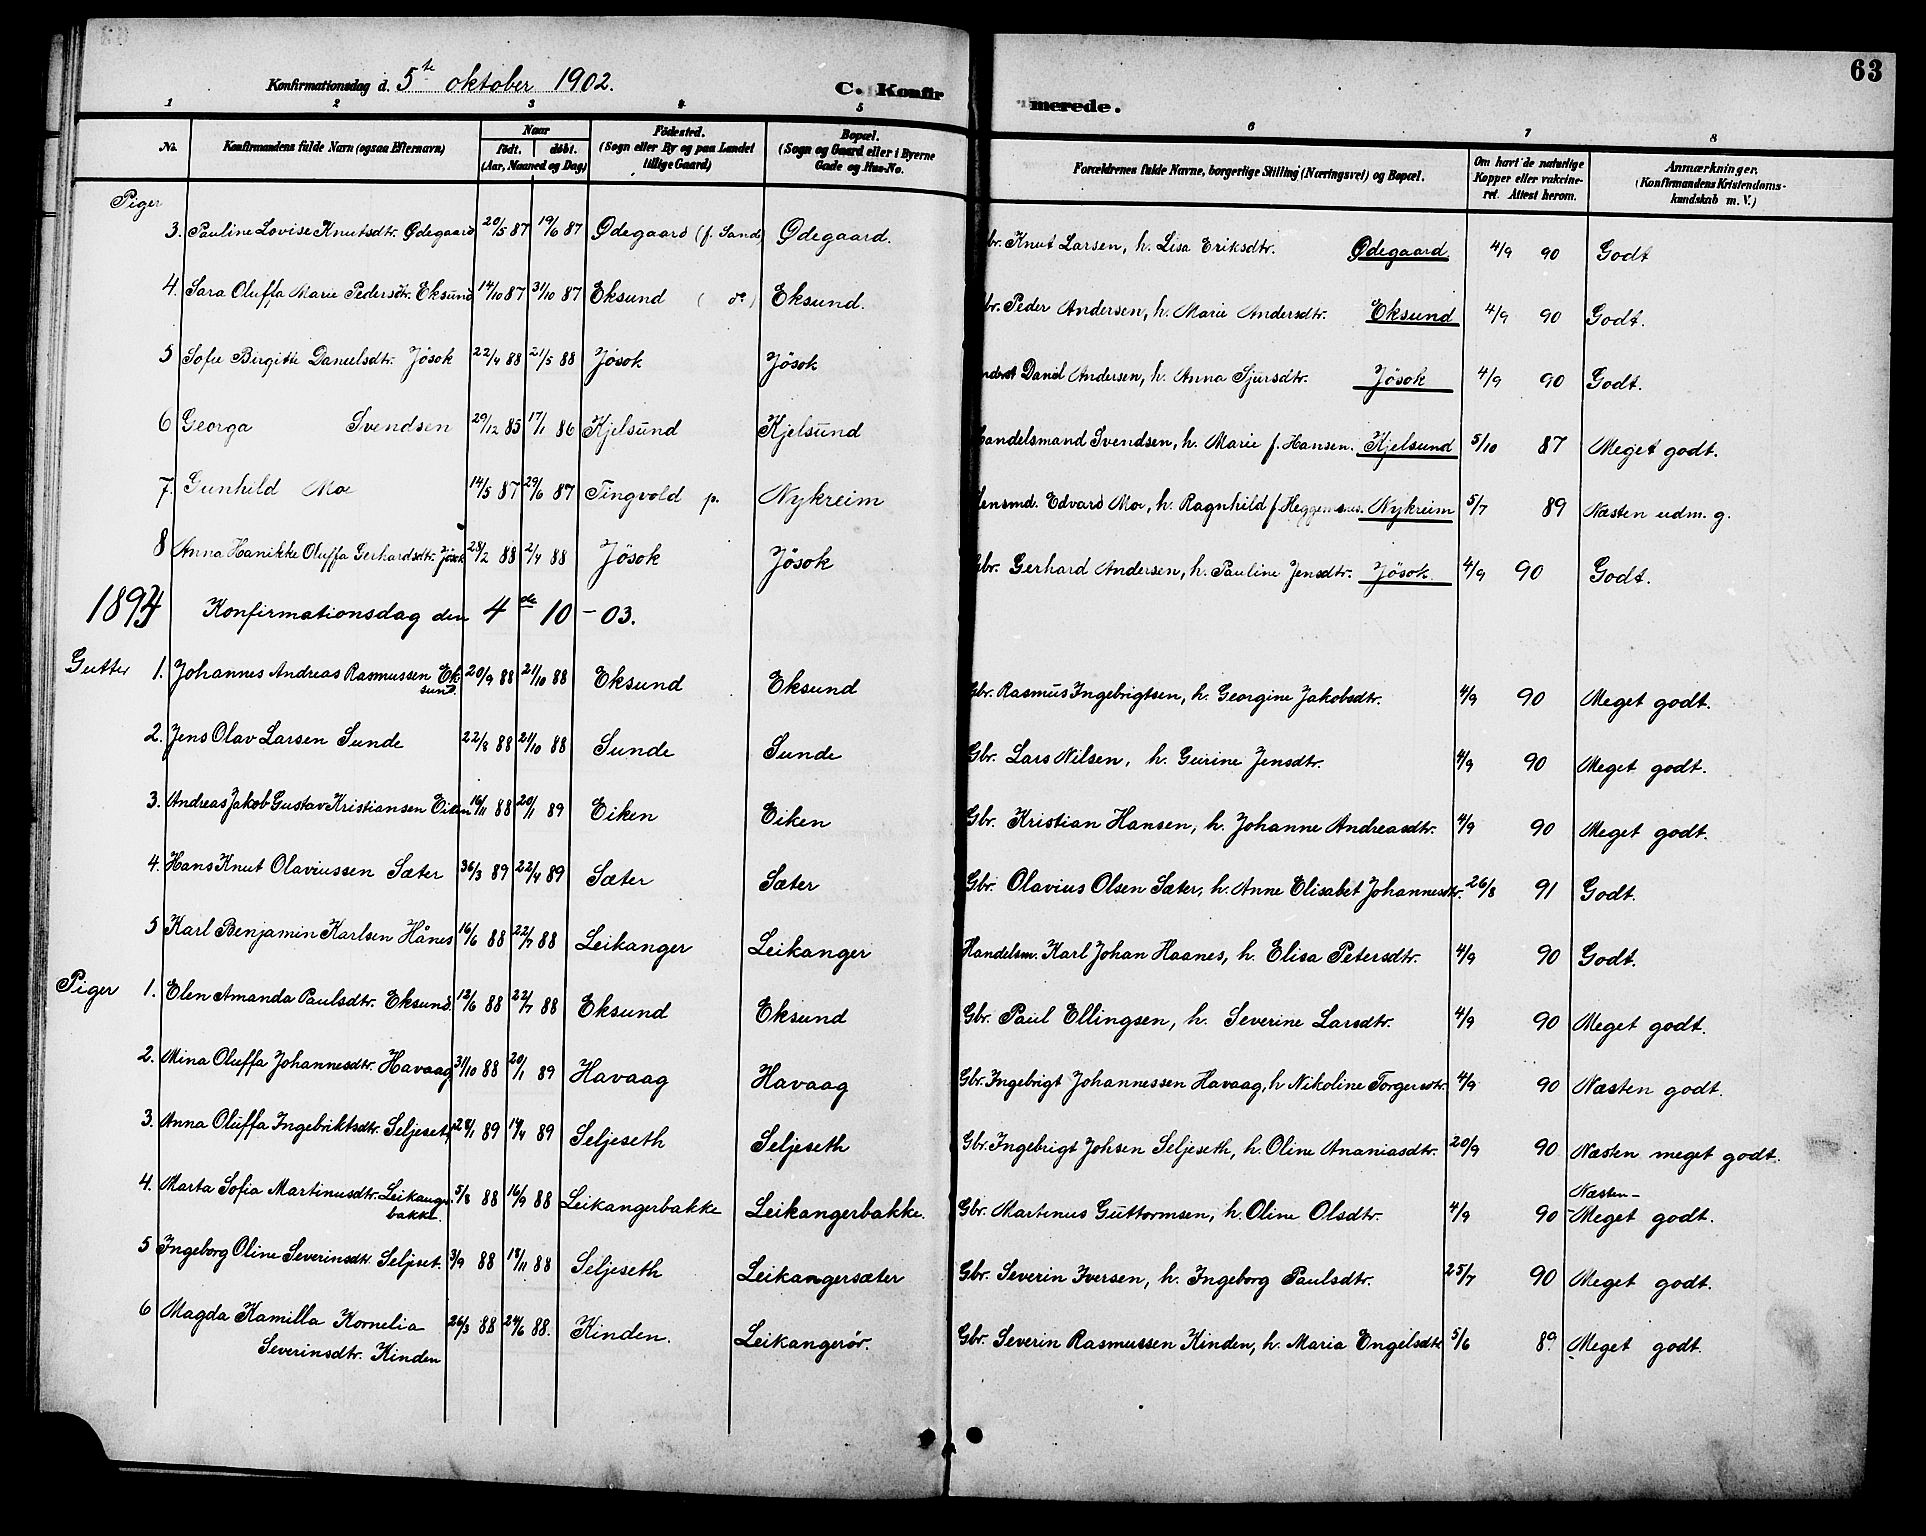 63
Konfirmationsdag d. 5te oktober 1902. C. Konfirmerede.
1 2 3 4 5 6 7 8
No. Konfirmandens fulde Navn (ogsaa Efternavn) Naar født. døbt. (Aar, Maaned og Dag) Fødested. (Sogn eller By og paa Landet tillige Gaard) Bopæl. (Sogn og Gaard eller i Byerne Gade og Hus-No. Forældrenes fulde Navne, borgerlige Stilling (Næringsvei) og Bopæl. Om havt de naturlige Kopper eller vakcineret. Attest herom. Anmærkninger. (Konfirmandens Kristendomskundskab m. V.)
Piger
3. Pauline Lovise Knutsdtr. Ødegaard 20/5 87 19/6 87 Ødegaard (f. Sand) Ødegaard. Gbr. Knut Larsen, h. Lisa Eriksdtr. Ødegaard 4/9 90 Godt
4. Sara Oluffa Marie Pedersdtr. Eksund 14/10 87 31/10 87 Eksund ( do ) Eksund. Gbr. Peder Andersen, h. Marie Andersdtr. Eksund 4/9 90 Godt.
5 Sofie Birgitte Danielsdtr. Jösok 22/4 88 21/5 88 Jösok Jösok Daniel Andersen, h. Anna Sjursdtr. Jösok 4/9 90 Godt.
6 Georga Svendsen 29/12 85 17/1 86 Kjelsund Kjelsund Handelsmand Svendsen, h. Marie f. Hansen. Kjelsund 5/10 87 Meget godt.
7. Gunhild Moe 14/5 87 29/6 87 Tingvold p. Nykreim Lensmd. Edvard Moe, h. Ragnhild f. Nykreim 5/7 89 Næsten udm. g.
8 Anna Hanikke Oluffa Gerhardsdtr. Jösok 28/2 88 2/4 88 Jösok Jösok Gbr. Gerhard Andersen, h. Pauline Jensdtr. Jösok 4/9 90 Godt.
Konfirmationsdag den 4de 10 - 03.
Gutter 1. Johannes Andreas Rasmussen Eksund 20/9 88 21/10 88 Eksund Eksund Gbr. Rasmus Ingebrigtsen, h. Georgine Jakobsdtr. 4/9 90 Meget godt.
2. Jens Olav Larsen Sunde 22/8 88 21/10 88 Sunde Sunde Gbr. Lars Nilsen, h. Gurine Jensdtr. 4/9 90 Meget godt.
3. Andreas Jakob Gustav Kristiansen Eiken 16/11 88 20/1 89 Eiken Eiken Gbr. Kristian Hansen, h. Johanne Andreasdtr. 4/9 90 Meget godt.
4. Hans Knut Olaviussen Sæter 89 22/4 89 Sæter Sæter Gbr. Olavius Olsen Sæter, h. Anne Elisabet Johannesdtr. 26/8 91 Godt.
5 Karl Benjamin Karlsen Hånes 16/6 88 22/7 88 Leikanger Leikanger Handelsm. Karl Johan Haanes, h. Elisa Petersdtr. 4/9 90 Godt.
Piger 1. Elen Amanda Paulsdtr. Eksund. 12/6 88 22/7 88 Eksund Eksund Gbr. Paul Ellingsen, h. Severine Larsdtr. 4/9 90 Meget godt.
2. Mina Oluffa Johannesdtr. Havaag 31/10 88 20/1 89 Havaag Havaag Gbr. Ingebrigt Johannessen Havaag, h. Nikoline Torgersdtr. 4/9 90 Næsten godt.
3. Anna Oluffa Ingebriktsdtr. Seljeseth 28/1 89 14/4 89 Seljeseth Seljeseth Gbr. Ingebrigt Johsen Seljeseth, h. Oline Ananiasdtr. 20/9 90 Næsten meget godt.
4. Marta Sofia Martinusdtr. Leikangerbakke. 5/8 88 16/9 88 Leikangerbakke Leikangerbakke. Gbr. Martinus Guttormsen, h. Oline Olsdtr. 4/9 90 Næsten- Meget godt.
5 Ingeborg Oline Severinsdtr. Seljeset. 3/9 88 18/11 88 Seljeseth Leikangersæter Gbr. Severin Iversen, h. Ingeborg Paulsdtr. 25/7 90 Meget godt.
6 Magda Kamilla Kornelia Severinsdtr. Kinden 26/3 88 24/6 88. Kinden. Leikangerör. Gbr. Severin Rasmussen Kinden, h. Maria Engelsdtr 5/6 89 Meget godt.